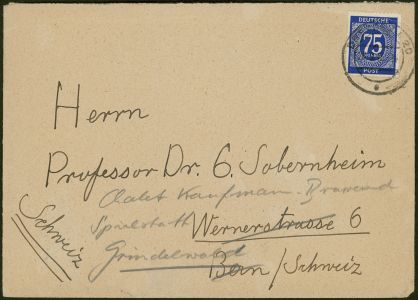 DEUTSCHE
75
POST
Herrn
Professor Dr. G. Sobernheim
Kaufmann
Wernerstrasse 6
Grindelwald
Bern/Schweiz
Schweiz